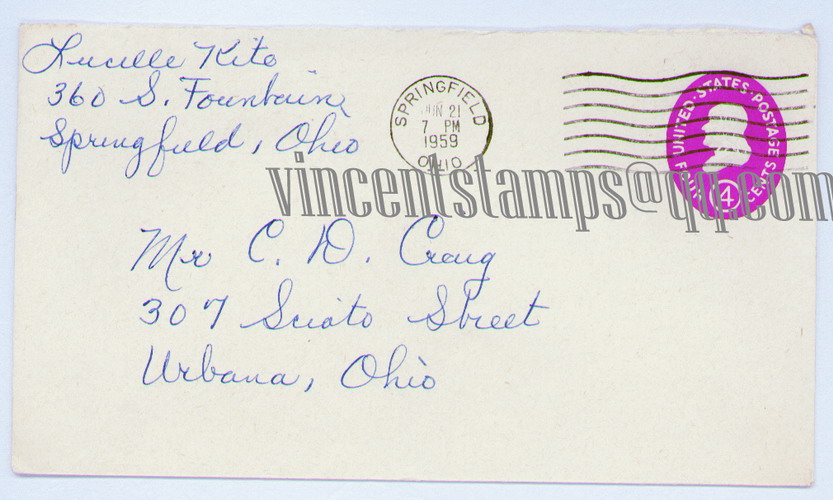 Lucille Kite
360 S. Fountain
Springfield, Ohio
SPRINGFIELD
JUN 21
7 PM
1959
OHIO
UNITED·STATES·POSTAGE
4 CENTS
vincentstamps@qq.com
Mr C. D. Craig
307 Scioto Street
Urbana, Ohio